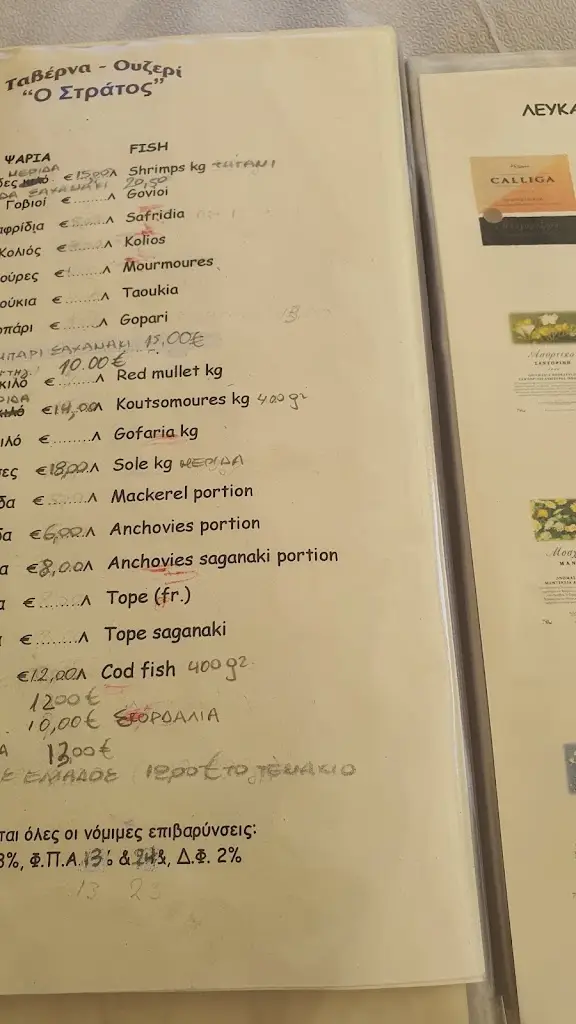 Ταβέρνα - Ουζερί
"Ο Στράτος"
ΨΑΡΙΑ FISH
ΜΕΡΙΔΑ
€15,00Λ Shrimps kg
ΣΑΧΑΝΑΚΙ 20,50
Γοβιοί €........Λ Govioi
αφρίδια €........Λ Safridia
Κολιός €........Λ Kolios
ούρες €........Λ Mourmoures
ούκια €........Λ Taoukia
οπάρι €........Λ Gopari
ΠΑΡΙ ΣΑΧΑΝΑΚΙ 15,00€
10.00€
κιλό €........Λ Red mullet kg
ΡΙΔΑ
€14,00Λ Koutsomoures kg 400 gr
ιλό €........Λ Gofaria kg
ες €18,00Λ Sole kg ΜΕΡΙΔΑ
δα €........Λ Mackerel portion
δα €6,00Λ Anchovies portion
α €8,00Λ Anchovies saganaki portion
α €........Λ Tope (fr.)
€........Λ Tope saganaki
€12,00Λ Cod fish 400 gr
1200€
10,00€ ΣΚΟΡΔΑΛΙΑ
Α 13,00€
ΤΟ ΤΕΜΑΚΙΟ
ται όλες οι νόμιμες επιβαρύνσεις:
3%, Φ.Π.Α. 13% & 24%, Δ.Φ. 2%
13 23
ΛΕΥΚΑ
CALLIGA